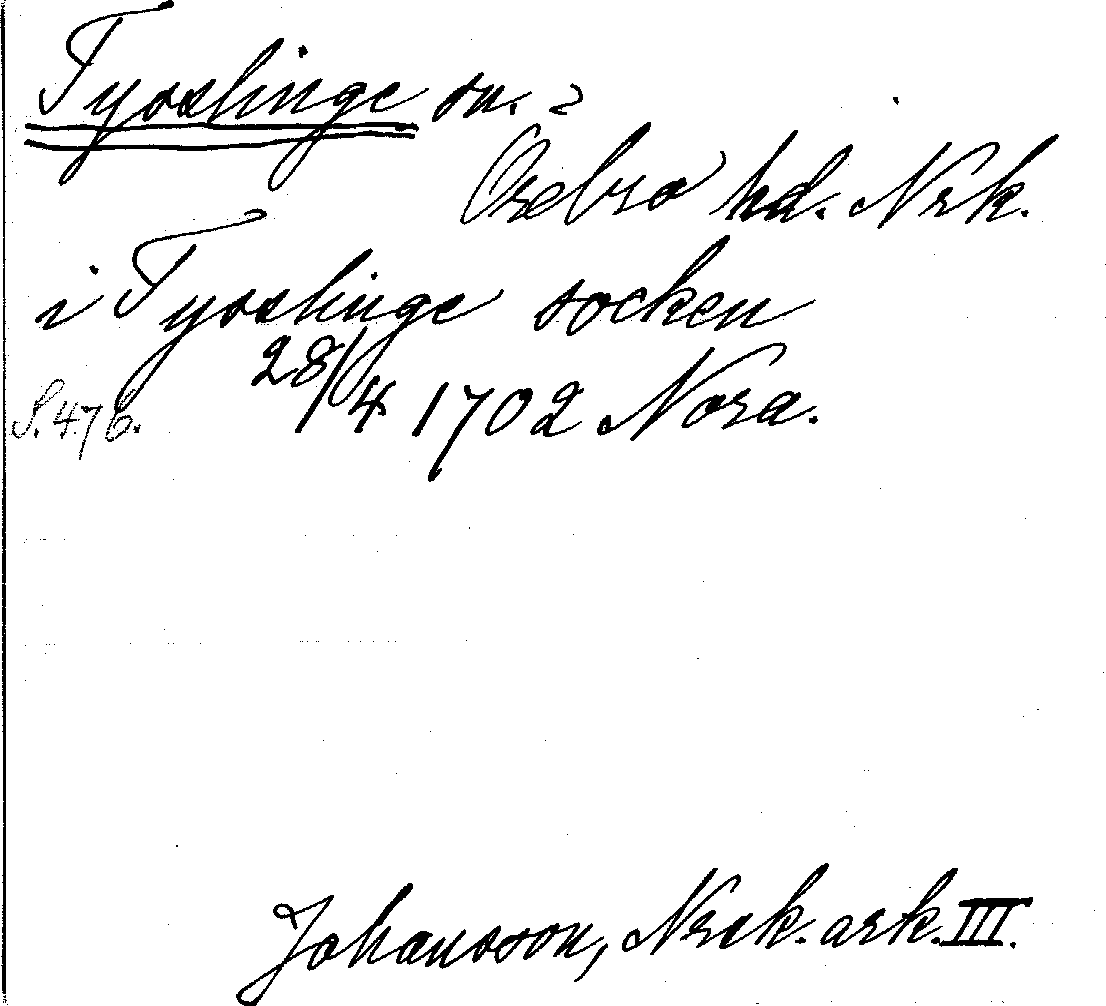 Tysslinge sn. 2
Örebro hd. Nrk.
i Tysslinge socken
28/4 1702 Nora.
S. 476.
Johansson, Närk. ark. III.